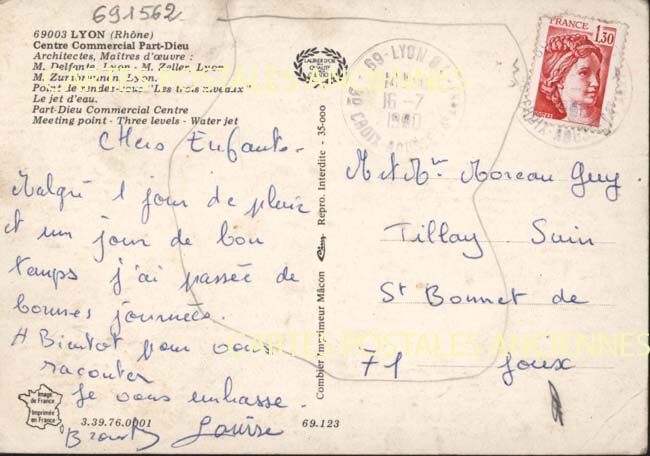 691562
69003 LYON (Rhône)
Centre Commercial Part-Dieu
Architectes, Maîtres d'œuvre :
M. Delfante, Lyon - M. Zeller, Lyon
M. Zumbrunnen, Lyon.
Point de rendez-vous "Les trois niveaux"
Le jet d'eau.
Part-Dieu Commercial Centre
Meeting point - Three levels - Water jet
Chers Enfants -
Malgré 1 jour de pluie
et un jour de bon
temps j'ai passée de
bonnes journées.
A Bientot pour vous
raconter
Je vous embrasse.
Louise
3.39.76.0001
69.123
Image de France
Imprimée en France
Combier Imprimeur Mâcon
Repro. Interdite - 35-000
69-LYON
16-7
1980
CROIX-ROUSSE
FRANCE
1,30
POSTES
M et Me Moreau Guy
Tillay
St Bonnet de
71 Joux
CARTES POSTALES ANCIENNES